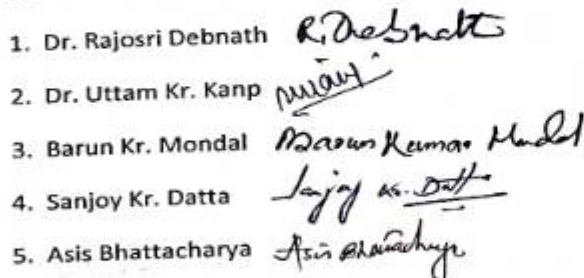 1. Dr. Rajosri Debnath R. Debnath
2. Dr. Uttam Kr. Kanp
3. Barun Kr. Mondal Barun Kumar Mondal
4. Sanjoy Kr. Datta Sanjoy Kr. Datta
5. Asis Bhattacharya Asis Bhattacharya